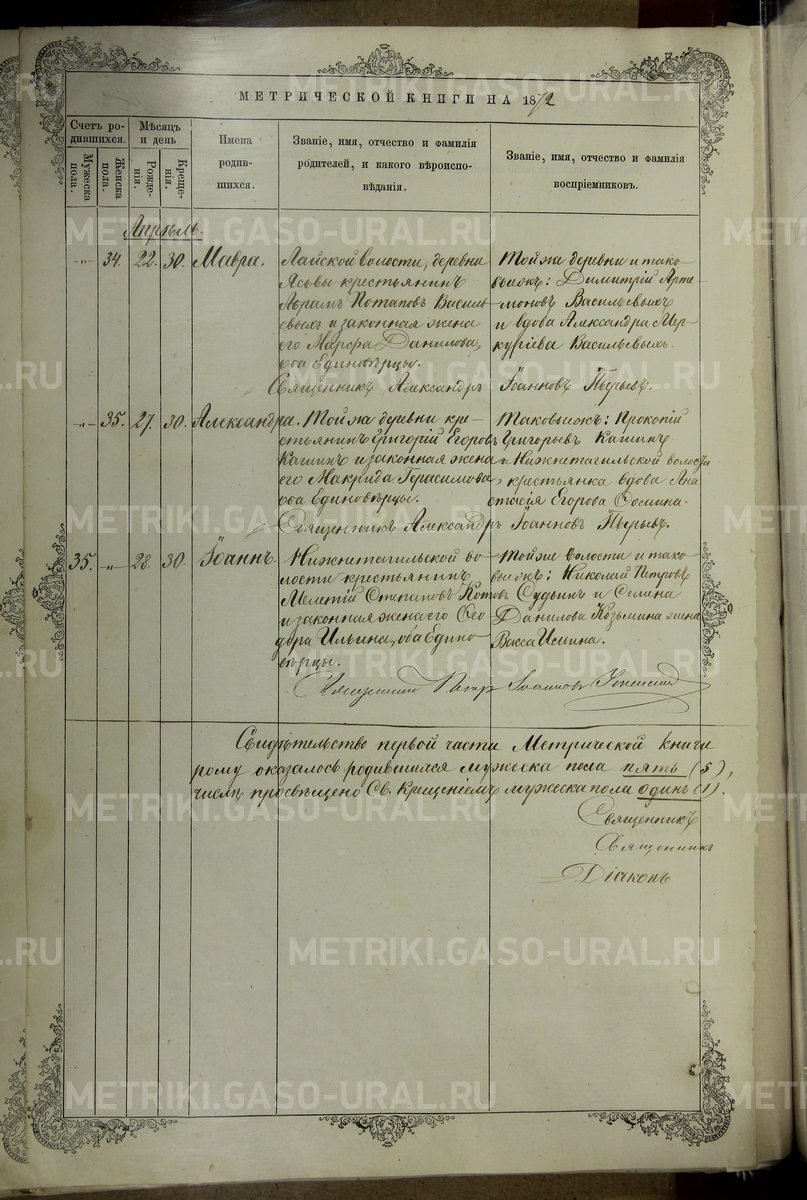 МЕТРИЧЕСКОЙ КНИГИ НА 1872
Счетъ ро-
дившихся.
Мужеска пола.
Женска пола.
Мѣсяцъ
и день
Рожде-
нія.
Креще-
нія.
Имена
родив-
шихся.
Званіе, имя, отчество и фамилія
родителей, и какого вѣроиспо-
вѣданія.
Званіе, имя, отчество и фамилія
воспріемниковъ.
Апрѣль.
-"- 34. 22. 30. Мавра.
Лайской волости, деревни
Ясьвы крестьянинъ
Аврамъ Потаповъ Василь-
евыхъ и законная жена
его Марѳа Данилова,
оба Единовѣрцы.
Той же деревни и тако-
выежъ: Димитрій Арте-
моновъ Васильевыхъ
и вдова Александра Мер-
куріева Васильевыхъ.
Священникъ Александръ Іоанновъ
-"- 35. 27. 30. Александра.
Той же деревни кре-
стьянинъ Григорій Егоровъ
Кашинъ и законная жена
его Макрида Герасимова
оба Единовѣрцы.
Таковыежъ: Прокопій
Григорьевъ Кашинъ
и Нижнетагильской волости
крестьянка вдова Ана-
стасія Егорова
Священникъ Александръ Іоанновъ
35. -"- 28. 30. Іоаннъ.
Нижнетагильской во-
лости крестьянинъ
Мелетій Степановъ Котовъ
и законная жена его Ѳео-
дора Ильина, оба Едино-
вѣрцы.
Той же волости и тако-
выежъ: Николай Петровъ
Судьинъ и
Данилова Козьмина жена
Васса
Священникъ Петръ Іоанновъ
Свидѣтельство первой части Метрической книги
рому оказалось родившихся мужеска пола пять (5),
числѣ просвѣщено Св. Крещеніемъ мужеска пола одинъ (1).
Священникъ
Священникъ
Діаконъ
METRIKI.GASO-URAL.RU